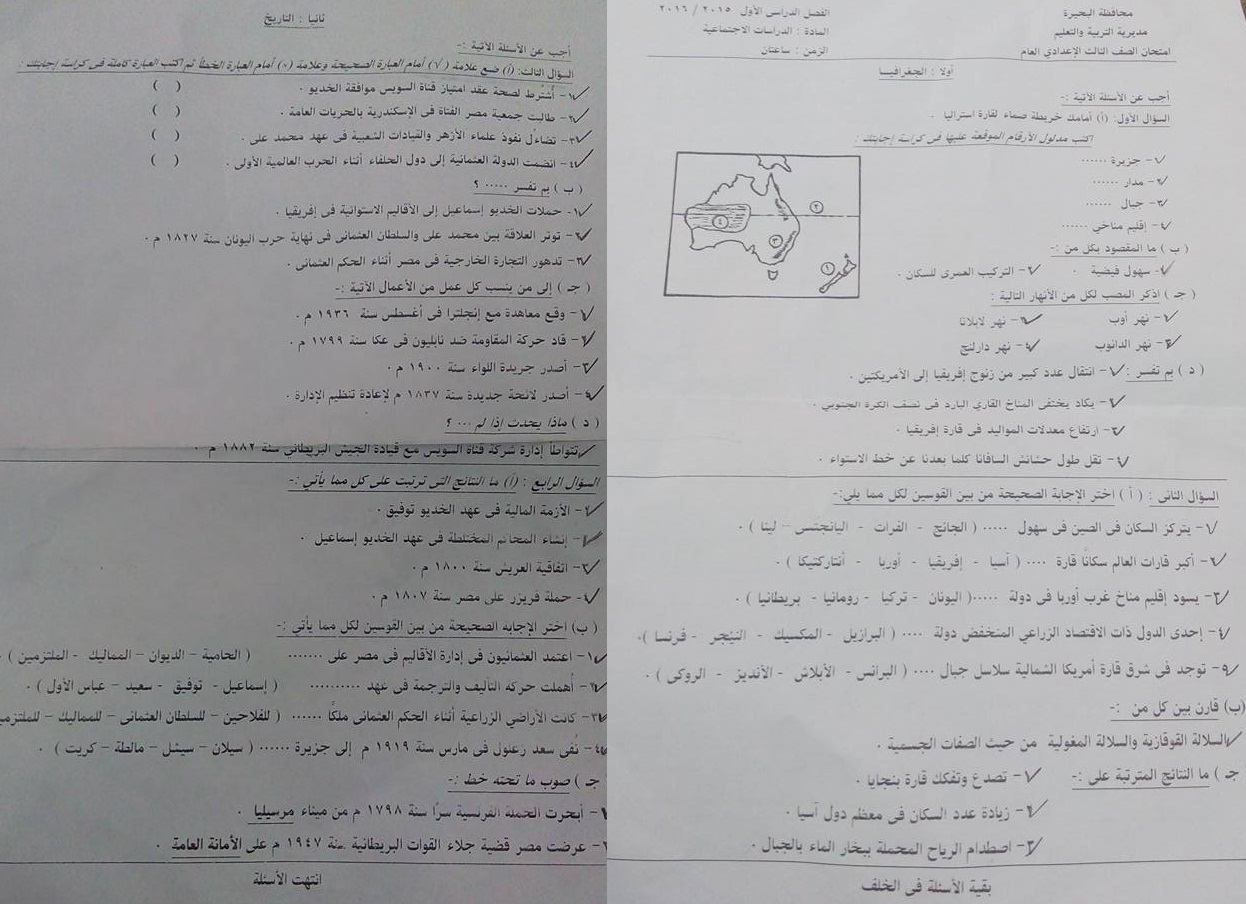 محافظة البحيرة
مديرية التربية والتعليم
امتحان الصف الثالث الإعدادي العام
الفصل الدراسى الأول ٢٠١٥ / ٢٠١٦
المادة : الدراسات الاجتماعية
الزمن : ساعتان
أولا : الجغرافيا
أجب عن الأسئلة الآتية :-
السؤال الأول: (أ) أمامك خريطة صماء لقارة استراليا .
اكتب مدلول الأرقام الموقعة عليها فى كراسة إجابتك :
١- جزيرة ......
٢- مدار ......
٣- جبال ......
٤- إقليم مناخي ......
١
٢
٣
٤
( ب ) ما المقصود بكل من :-
١- سهول فيضية . ٢- التركيب العمرى للسكان .
( جـ ) اذكر المصب لكل من الأنهار التالية :
١- نهر أوب ٢- نهر لابلاتا
٣- نهر الدانوب ٤- نهر دارلنج
( د ) بم تفسر : ١- انتقال عدد كبير من زنوج إفريقيا إلى الأمريكتين .
٢- يكاد يختفى المناخ القاري البارد فى نصف الكرة الجنوبي .
٣- ارتفاع معدلات المواليد فى قارة إفريقيا .
٤- تقل طول حشائش السافانا كلما بعدنا عن خط الاستواء .
السؤال الثانى : ( أ ) اختر الإجابة الصحيحة من بين القوسين لكل مما يلي:-
١- يتركز السكان فى الصين فى سهول ..... ( الجانج - الفرات - اليانجتسى - لينا )
٢- أكبر قارات العالم سكانًا قارة .... ( آسيا - إفريقيا - أوربا - أنتاركتيكا ) .
٣- يسود إقليم مناخ غرب أوربا فى دولة .....( اليونان - تركيا - رومانيا - بريطانيا ) .
٤- إحدى الدول ذات الاقتصاد الزراعي المنخفض دولة .... ( البرازيل - المكسيك - النيجر - فرنسا ) .
٥- توجد فى شرق قارة أمريكا الشمالية سلاسل جبال .... ( البرانس - الأبلاش - الأنديز - الروكى ) .
(ب) قارن بين كل من :-
السلالة القوقازية والسلالة المغولية من حيث الصفات الجسمية .
جـ ) ما النتائج المترتبة على :- ١- تصدع وتفكك قارة بنجايا .
٢- زيادة عدد السكان فى معظم دول آسيا .
٣- اصطدام الرياح المحملة ببخار الماء بالجبال .
بقية الأسئلة فى الخلف
ثانيا : التاريخ
أجب عن الأسئلة الآتية :-
السؤال الثالث: (أ) ضع علامة (√) أمام العبارة الصحيحة وعلامة (×) أمام العبارة الخطأ ثم اكتب العبارة كاملة فى كراسة إجابتك :
١- أُشترط لصحة عقد امتياز قناة السويس موافقة الخديو . ( )
٢- طالبت جمعية مصر الفتاة فى الإسكندرية بالحريات العامة . ( )
٣- تضاءل نفوذ علماء الأزهر والقيادات الشعبية فى عهد محمد على . ( )
٤- انضمت الدولة العثمانية إلى دول الحلفاء أثناء الحرب العالمية الأولى . ( )
( ب ) بم تفسر ..... ؟
١- حملات الخديو إسماعيل إلى الأقاليم الاستوائية فى إفريقيا .
٢- توتر العلاقة بين محمد على والسلطان العثمانى فى نهاية حرب اليونان سنة ١٨٢٧ م .
٣- تدهور التجارة الخارجية فى مصر أثناء الحكم العثمانى .
( جـ ) إلى من ينسب كل عمل من الأعمال الآتية :-
١- وقع معاهدة مع إنجلترا فى أغسطس سنة ١٩٣٦ م .
٢- قاد حركة المقاومة ضد نابليون فى عكا سنة ١٧٩٩ م .
٣- أصدر جريدة اللواء سنة ١٩٠٠ م .
٤- أصدر لائحة جديدة سنة ١٨٣٧ م لإعادة تنظيم الإدارة .
( د ) ماذا يحدث إذا لم ... ؟
تتواطأ إدارة شركة قناة السويس مع قيادة الجيش البريطاني سنة ١٨٨٢ م .
السؤال الرابع : (أ) ما النتائج التى ترتبت على كل مما يأتي :-
١- الأزمة المالية فى عهد الخديو توفيق .
٢- إنشاء المحاكم المختلطة فى عهد الخديو إسماعيل .
٣- اتفاقية العريش سنة ١٨٠٠ م .
٤- حملة فريزر على مصر سنة ١٨٠٧ م .
( ب ) اختر الإجابة الصحيحة من بين القوسين لكل مما يأتى :-
١- اعتمد العثمانيون فى إدارة الأقاليم فى مصر على ....... ( الحامية - الديوان - المماليك - الملتزمين ) .
٢- أهملت حركة التأليف والترجمة فى عهد .......... ( إسماعيل - توفيق - سعيد - عباس الأول ) .
٣- كانت الأراضي الزراعية أثناء الحكم العثمانى ملكًا ...... ( للفلاحين - للسلطان العثمانى - للمماليك - للملتزمين
٤- نُفى سعد زغلول فى مارس سنة ١٩١٩ م إلى جزيرة ...... ( سيلان - سيشل - مالطة - كريت ) .
جـ ) صوب ما تحته خط :-
١- أبحرت الحملة الفرنسية سرًا سنة ١٧٩٨ م من ميناء مرسيليا .
٢- عرضت مصر قضية جلاء القوات البريطانية سنة ١٩٤٧ م على الأمانة العامة .
انتهت الأسئلة